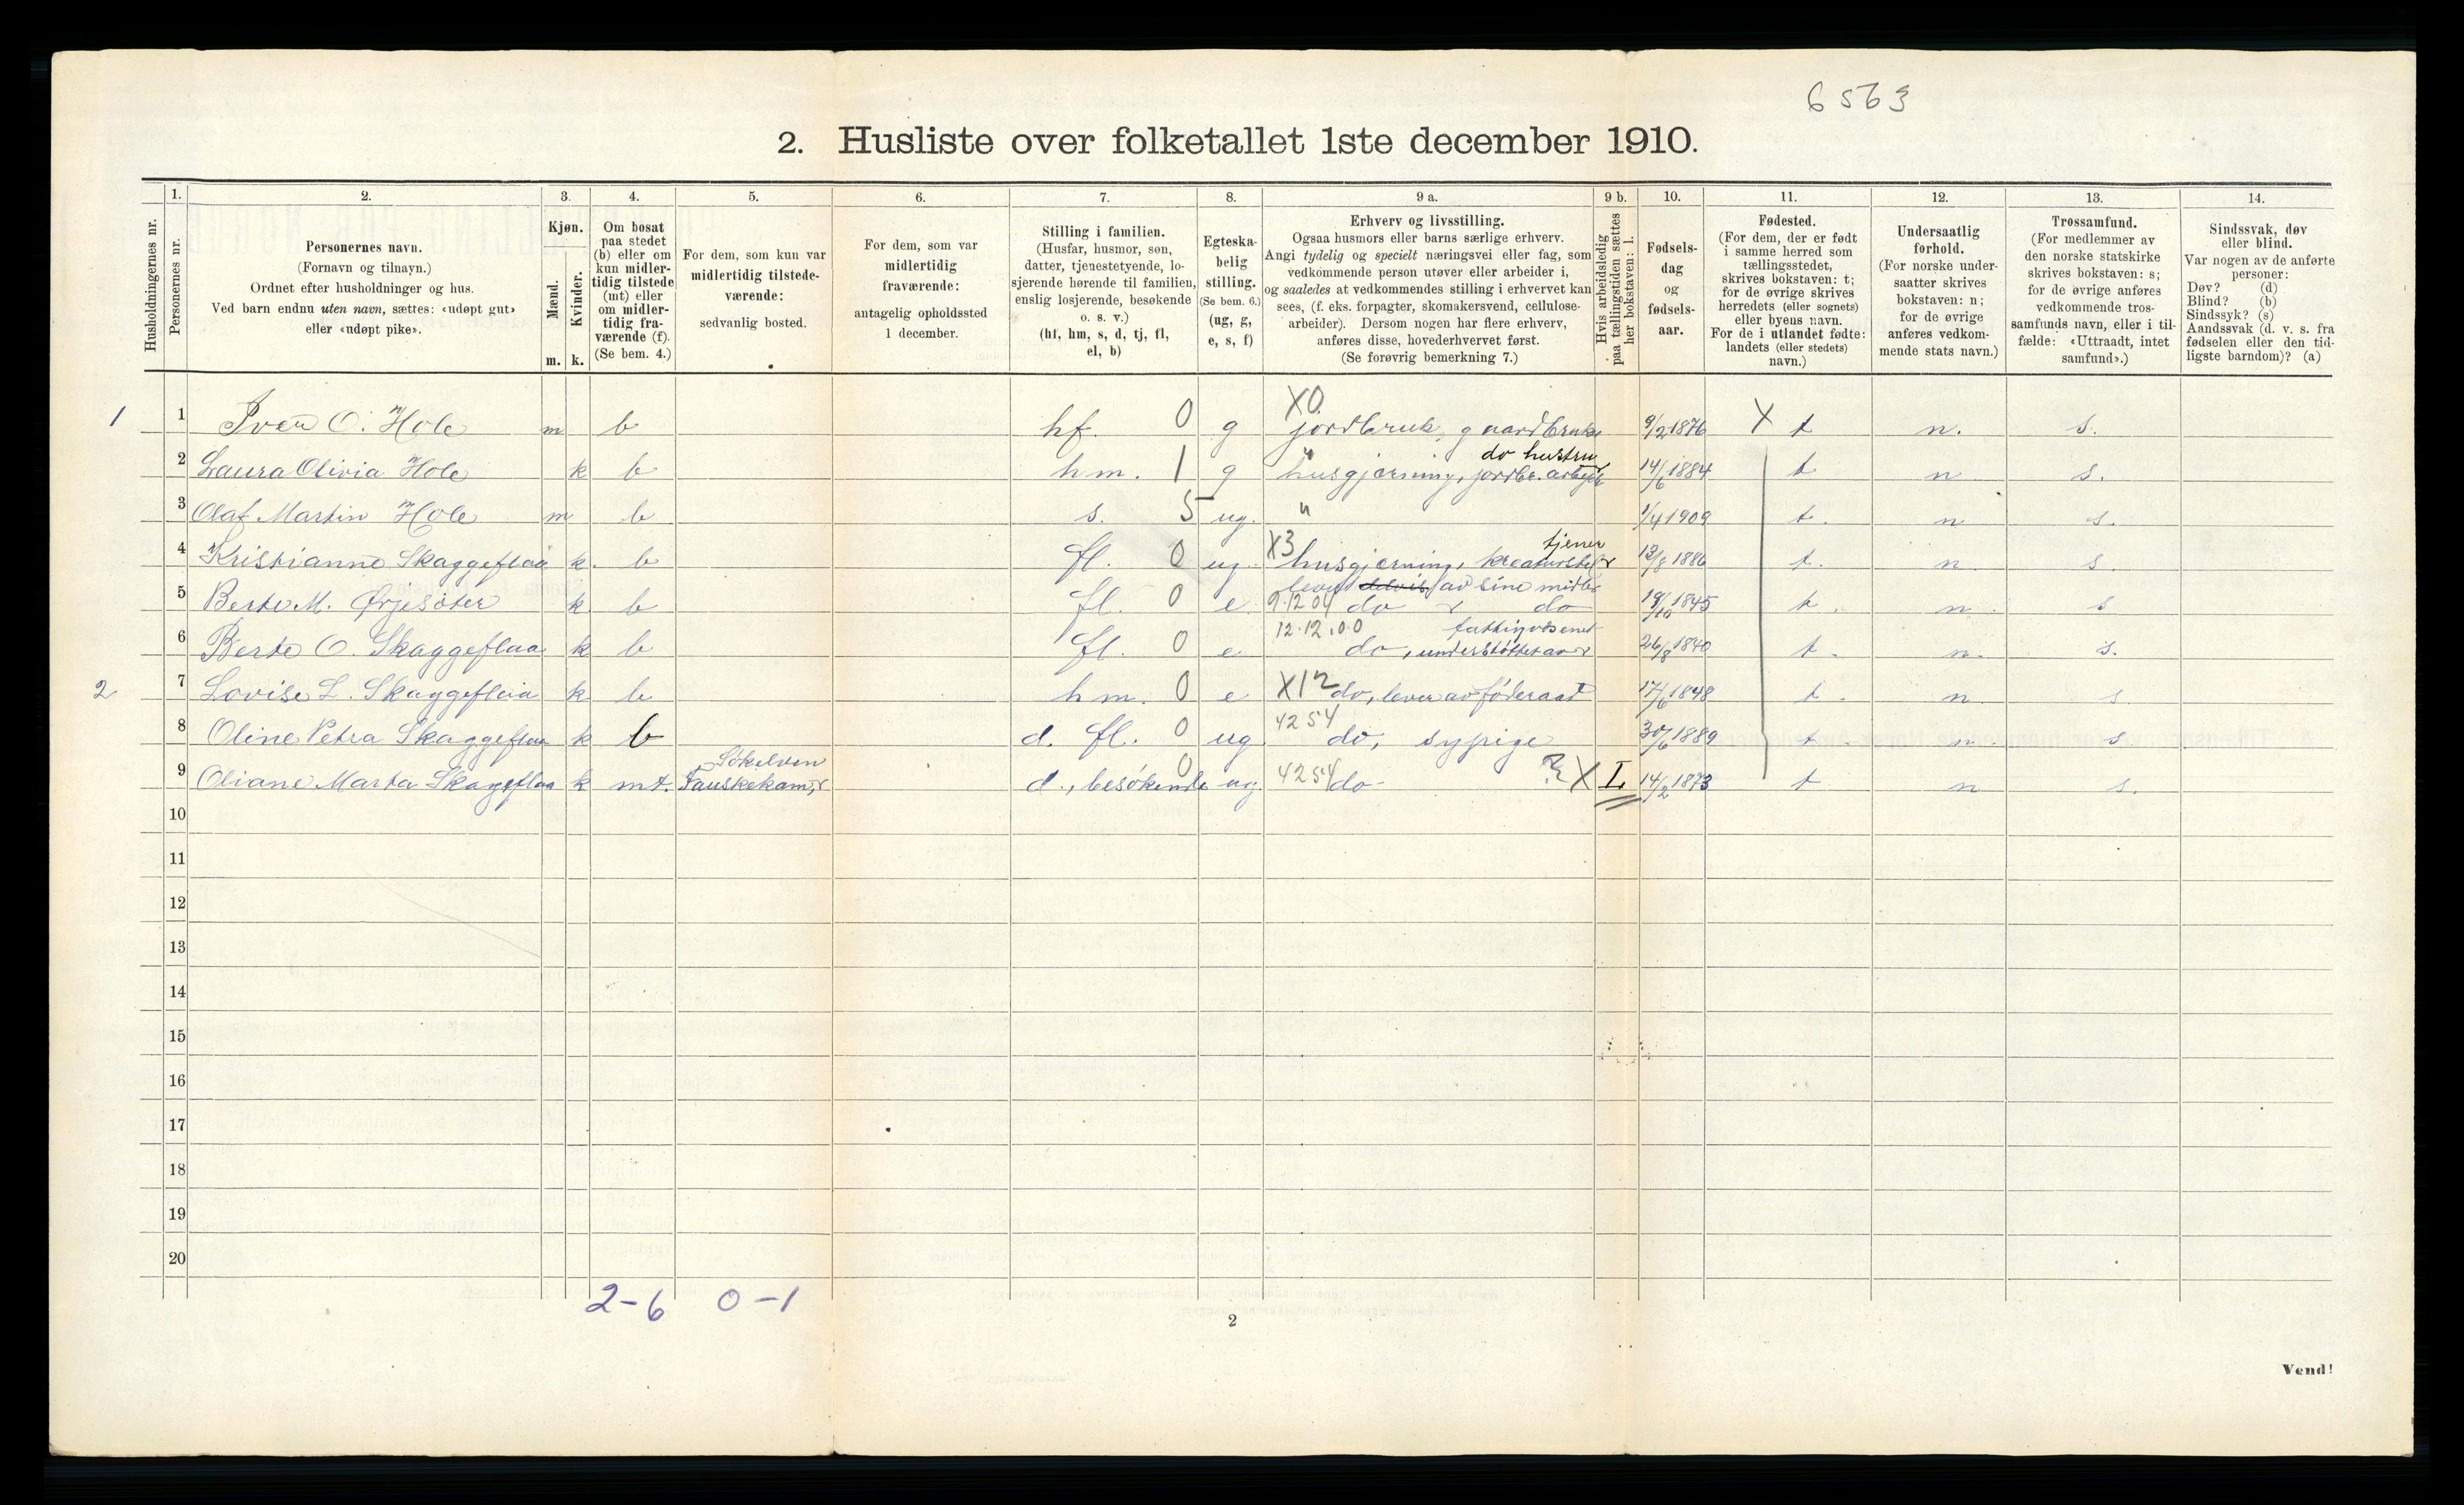 6563
2. Husliste over folketallet 1ste december 1910.
Husholdningernes nr.
1.
Personernes nr.
2.
Personernes navn.
(Fornavn og tilnavn.)
Ordnet efter husholdninger og hus.
Ved barn endnu uten navn, sættes: «udøpt gut»
eller «udøpt pike».
3.
Kjøn.
Mænd.
Kvinder.
m. k.
4.
Om bosat
paa stedet
(b) eller om
kun midler-
tidig tilstede
(mt) eller
om midler-
tidig fra-
værende (f).
(Se bem. 4.)
5.
For dem, som kun var
midlertidig tilstede-
værende:
sedvanlig bosted.
6.
For dem, som var
midlertidig
fraværende:
antagelig opholdssted
1 december.
7.
Stilling i familien.
(Husfar, husmor, søn,
datter, tjenestetyende, lo-
sjerende hørende til familien,
enslig losjerende, besøkende
o. s. v.)
(hf, hm, s, d, tj, fl,
el, b)
8.
Egteska-
belig
stilling.
(Se bem. 6.)
(ug, g,
e, s, f)
9 a.
Erhverv og livsstilling.
Ogsaa husmors eller barns særlige erhverv.
Angi tydelig og specielt næringsvei eller fag, som
vedkommende person utøver eller arbeider i,
og saaledes at vedkommendes stilling i erhvervet kan
sees, (f. eks. forpagter, skomakersvend, cellulose-
arbeider). Dersom nogen har flere erhverv,
anføres disse, hovederhvervet først.
(Se forøvrig bemerkning 7.)
9 b.
Hvis arbeidsledig
paa tællingstiden sættes
her bokstaven: l.
10.
Fødsels-
dag
og
fødsels-
aar.
11.
Fødested.
(For dem, der er født
i samme herred som
tællingsstedet,
skrives bokstaven: t;
for de øvrige skrives
herredets (eller sognets)
eller byens navn.
For de i utlandet fødte:
landets (eller stedets)
navn.)
12.
Undersaatlig
forhold.
(For norske under-
saatter skrives
bokstaven: n;
for de øvrige
anføres vedkom-
mende stats navn.)
13.
Trossamfund.
(For medlemmer av
den norske statskirke
skrives bokstaven: s;
for de øvrige anføres
vedkommende tros-
samfunds navn, eller i til-
fælde: «Uttraadt, intet
samfund».)
14.
Sindssvak, døv
eller blind.
Var nogen av de anførte
personer:
Døv? (d)
Blind? (b)
Sindssyk? (s)
Aandssvak (d. v. s. fra
fødselen eller den tid-
ligste barndom)? (a)
X0
1 1 Iver O. Hole m b hf. 0 g jordbruk, gaardbruker 9/2 1876 X t n. s.
do hustru
2 Laura Olivia Hole k b hm. 1 g husgjerning, jordbr. arbeide 14/6 1884 t n s.
3 Olaf Martin Hole m b s. 5 ug. " 1/4 1909 t. n s.
tjener
4 Kristianne Skaggeflaa k. b fl. 0 ug. X3 husgjerning, kreaturstel 13/8 1886 t. n. s.
lever delvis av sine midler
5 Berte M. Ørjesæter k b fl. 0 e 9.12 04 do do 19/10 1845 t. n. s
12.12.00 fattigvæsenet
6 Berte O. Skaggeflaa k b fl. 0 e do, understøttet av 26/8 1840 t. n. s.
2 7 Lovise L. Skaggeflaa k b hm. 0 e X12 do, lever av føderaad 17/6 1848 t. n. s
8 Oline Petra Skaggeflaa k b d. fl. 0 ug 4254 do, sypige 30/6 1889 t. n. s
Søkelven
9 Oliane Marta Skaggeflaa k mt. Fauskekam, d., besøkende 0 ug. 4254 do- X L 14/2 1873 t n s.
10
11
12
13
14
15
16
17
18
19
20
2-6 0-1
2
Vend!